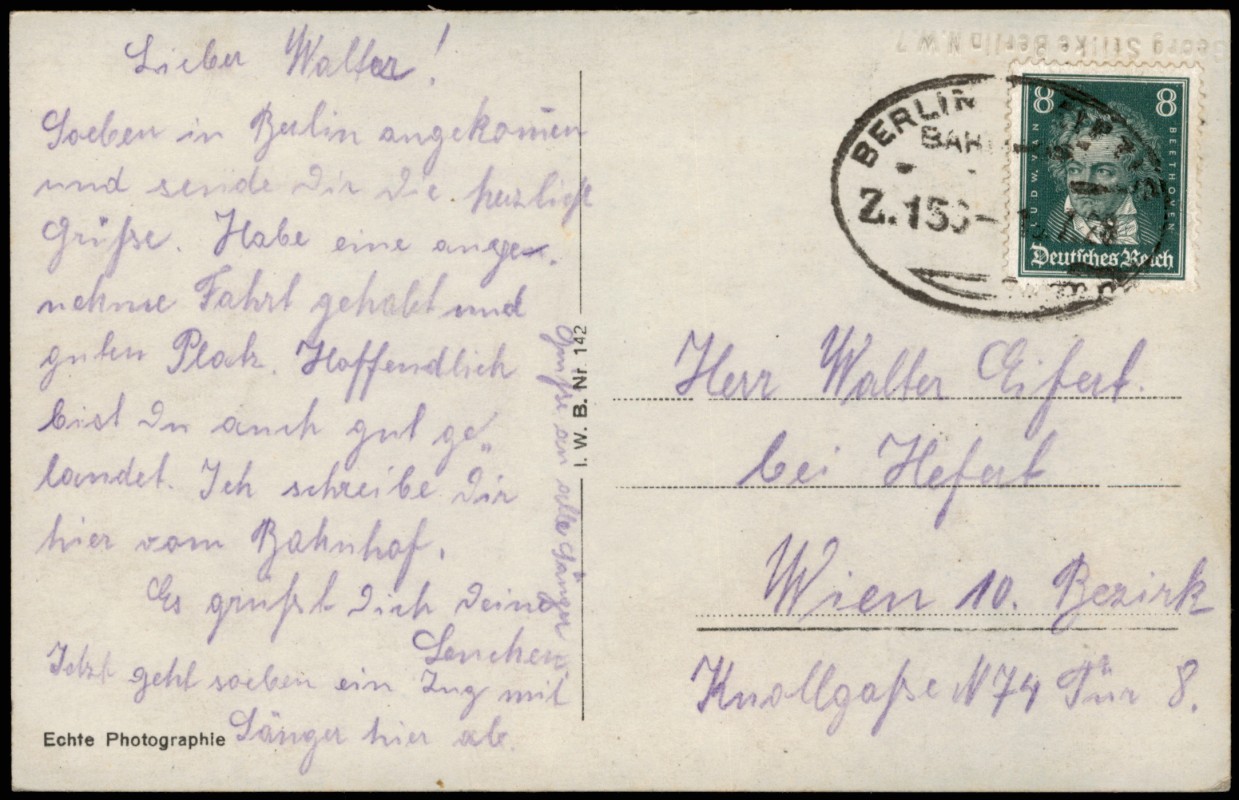 Lieber Walter!
Soeben in Berlin angekom̄en
und sende Dir die herzlichst
Grüße. Habe eine ange-
nehme Fahrt gehabt und
guten Platz. Hoffendlich
bist Du auch gut ge„
landet. Ich schreibe Dir
hier vom Bahnhof.
Es grüßt Dich Deine
Lenchen
Jetzt geht soeben ein Zug mit
Sänger hier ab.
Echte Photographie
Grüße an alle Sänger
I. W. B. Nr. 142
Georg Stilke Berlin N.W.7
BERLIN
BAH
Z.156
8 8
LUDW. VAN BEETHOVEN
Deutsches Reich
Herr Walter Eifert.
bei Hefert
Wien 10. Bezirk
Knollgaße N 74 Tür 8.